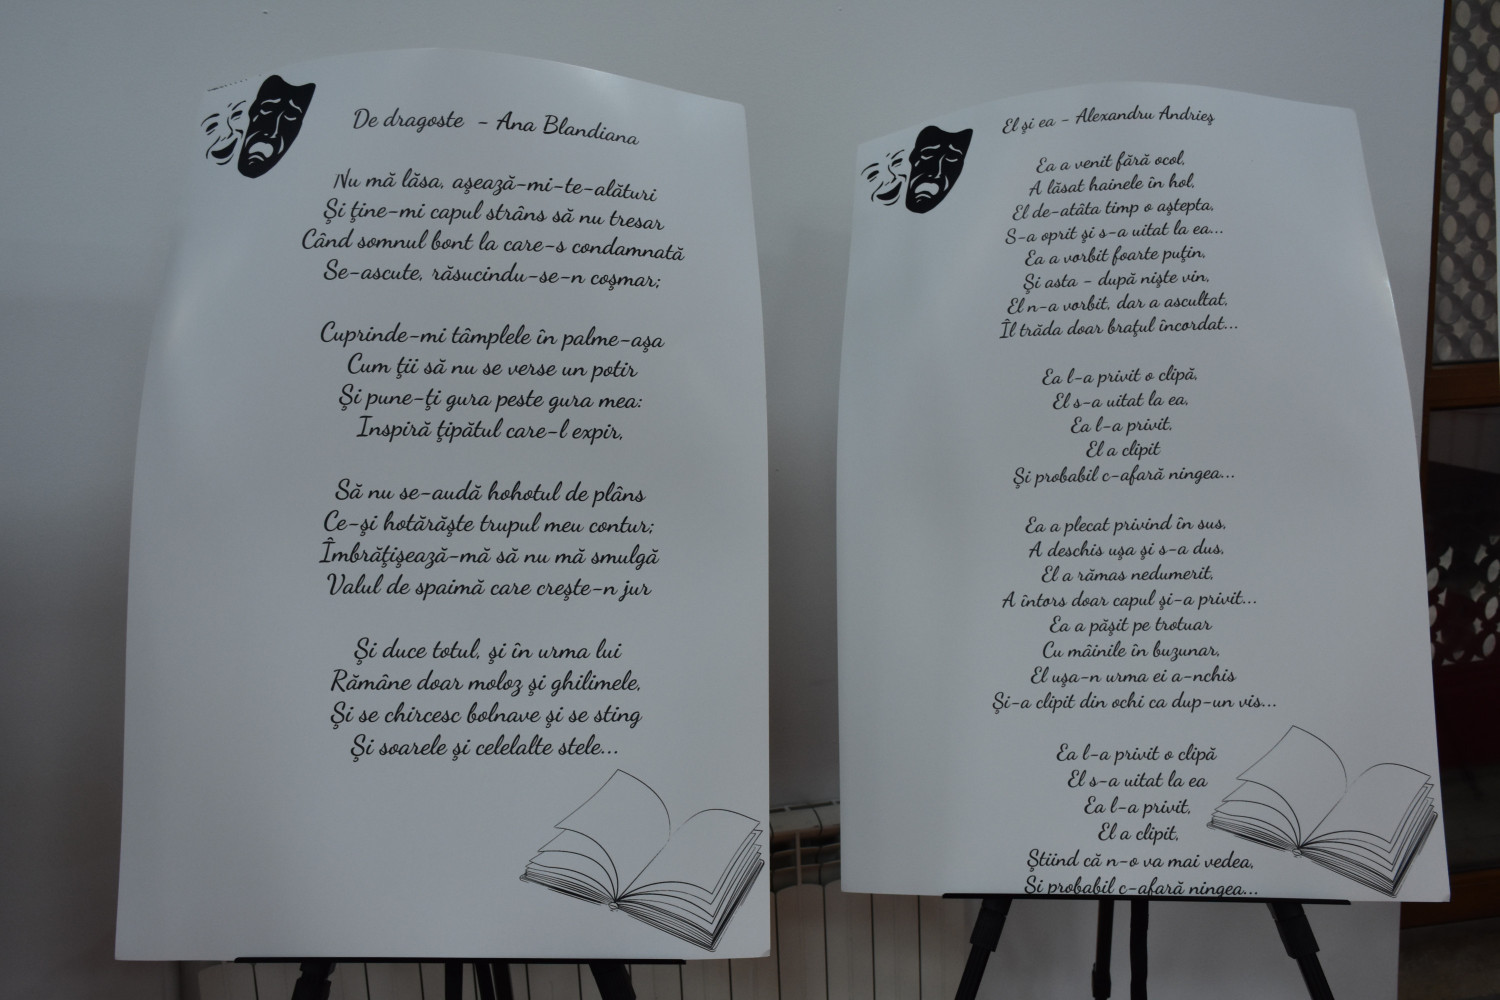 De dragoste - Ana Blandiana
Nu mă lăsa, aşează-mi-te-alături
Şi ţine-mi capul strâns să nu tresar
Când somnul bont la care-s condamnată
Se-ascute, răsucindu-se-n coşmar;
Cuprinde-mi tâmplele în palme-aşa
Cum ţii să nu se verse un potir
Şi pune-ţi gura peste gura mea:
Inspiră ţipătul care-l expir,
Să nu se-audă hohotul de plâns
Ce-şi hotărăşte trupul meu contur;
Îmbrăţişează-mă să nu mă smulgă
Valul de spaimă care creşte-n jur
Şi duce totul, şi în urma lui
Rămâne doar moloz şi ghilimele,
Şi se chircesc bolnave şi se sting
Şi soarele şi celelalte stele...
El şi ea - Alexandru Andrieş
Ea a venit fără ocol,
A lăsat hainele în hol,
El de-atâta timp o aştepta,
S-a oprit şi s-a uitat la ea...
Ea a vorbit foarte puţin,
Şi asta - după nişte vin,
El n-a vorbit, dar a ascultat,
Îl trăda doar braţul încordat...
Ea l-a privit o clipă,
El s-a uitat la ea,
Ea l-a privit,
El a clipit
Şi probabil c-afară ningea...
Ea a plecat privind în sus,
A deschis uşa şi s-a dus,
El a rămas nedumerit,
A întors doar capul şi-a privit...
Ea a păşit pe trotuar
Cu mâinile în buzunar,
El uşa-n urma ei a-nchis
Şi-a clipit din ochi ca dup-un vis...
Ea l-a privit o clipă
El s-a uitat la ea
Ea l-a privit,
El a clipit,
Ştiind că n-o va mai vedea,
Şi probabil c-afară ningea...